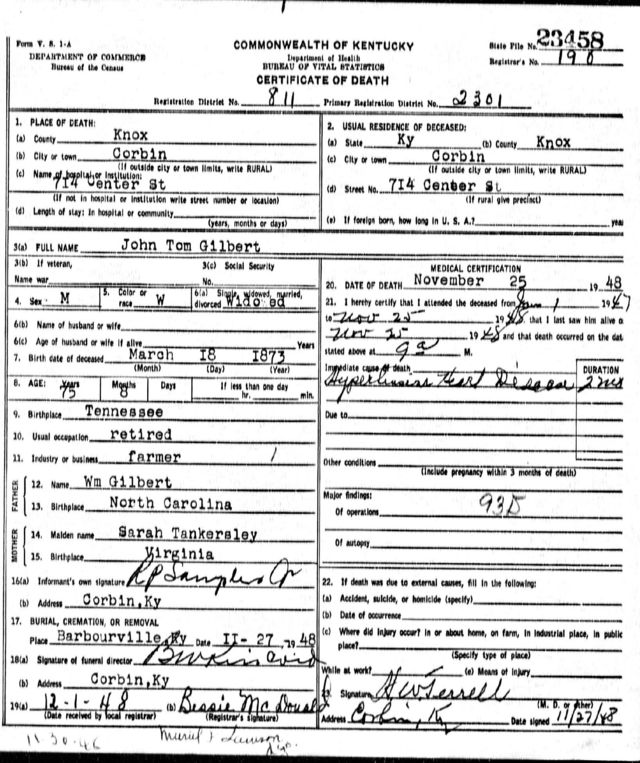 Form V. S. 1-A
DEPARTMENT OF COMMERCE
Bureau of the Census
COMMONWEALTH OF KENTUCKY
Department of Health
BUREAU OF VITAL STATISTICS
CERTIFICATE OF DEATH
State File No. 23458
Registrar's No. 190
Registration District No. 811 Primary Registration District No. 2301
1. PLACE OF DEATH:
(a) County Knox
(b) City or town Corbin
(If outside city or town limits, write RURAL)
(c) Name of hospital or institution:
714 Center St
(If not in hospital or institution write street number or location)
(d) Length of stay: In hospital or community
(years, months or days)
2. USUAL RESIDENCE OF DECEASED:
(a) State Ky (b) County Knox
(c) City or town Corbin
(If outside city or town limits, write RURAL)
(d) Street No. 714 Center St
(If rural give precinct)
(e) If foreign born, how long in U. S. A.? years
3(a) FULL NAME John Tom Gilbert
3(b) If veteran,
Name war
3(c) Social Security
No.
4. Sex M
5. Color or
race W
6(a) Single, widowed, married,
divorced Widowed
6(b) Name of husband or wife
6(c) Age of husband or wife if alive Years
7. Birth date of deceased March 18 1873
(Month) (Day) (Year)
8. AGE: Years Months Days If less than one day
75 8 hr. min.
9. Birthplace Tennessee
10. Usual occupation retired
11. Industry or business farmer
FATHER
12. Name Wm Gilbert
13. Birthplace North Carolina
MOTHER
14. Maiden name Sarah Tankersley
15. Birthplace Virginia
16(a) Informant's own signature R P Samples Jr
(b) Address Corbin,Ky
17. BURIAL, CREMATION, OR REMOVAL
Place Barbourville,Ky Date 11-27 1948
18(a) Signature of funeral director
(b) Address Corbin,Ky
19(a) 12-1-48 (b) Bessie McDonald
(Date received by local registrar) (Registrar's signature)
MEDICAL CERTIFICATION
20. DATE OF DEATH November 25 1948
21. I hereby certify that I attended the deceased from 1 1947
to Nov 25 1948 that I last saw him alive o
Nov 25 1948 and that death occurred on the dat
stated above at 9a M.
Immediate cause of death
Heart Disease
DURATION
Due to
Other conditions
(Include pregnancy within 3 months of death)
Major findings:
Of operations 93D
Of autopsy
22. If death was due to external causes, fill in the following:
(a) Accident, suicide, or homicide (specify)
(b) Date of occurrence
(c) Where did injury occur? in or about home, on farm, in industrial place, in public
place?
(Specify type of place)
While at work? (e) Means of Injury
23. Signature
(M. D. or other)
Address Corbin, Ky Date signed 11/27/48
11-30-46